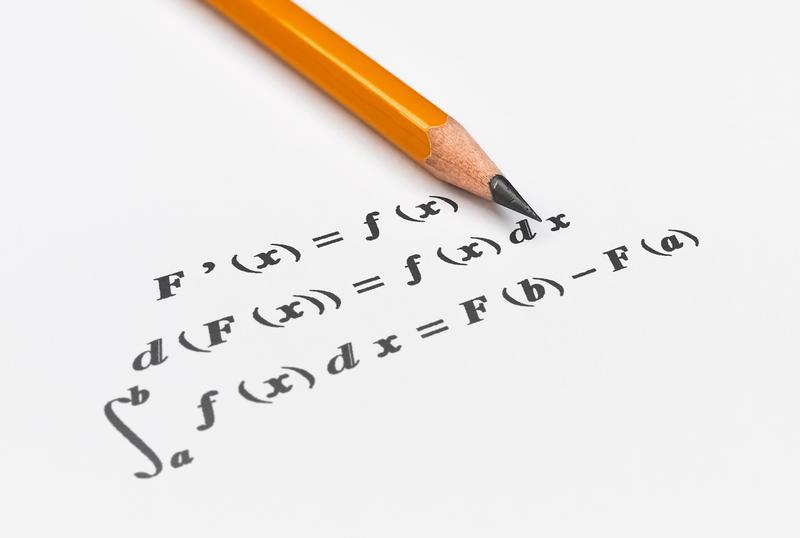 F'(x) = f(x)
d(F(x)) = f(x)dx
∫_a^b f(x)dx = F(b) – F(a)